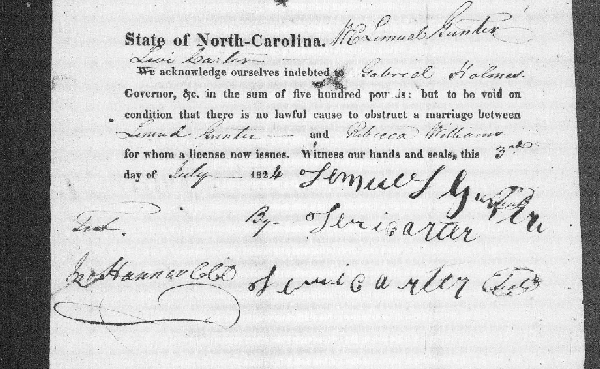 State of North-Carolina. We Lemuel Gunter
Levi Carter
We acknowledge ourselves indebted to Gabriel Holmes
Governor, &c. in the sum of five hundred pounds: but to be void on
condition that there is no lawful cause to obstruct a marriage between
Lemuel Gunter and Rebecca Williams
for whom a license now issues. Witness our hands and seals, this 3rd
day of July 1824 Lemuel Gunter
Test. By Levi Carter
Hannah Clk Levi Carter